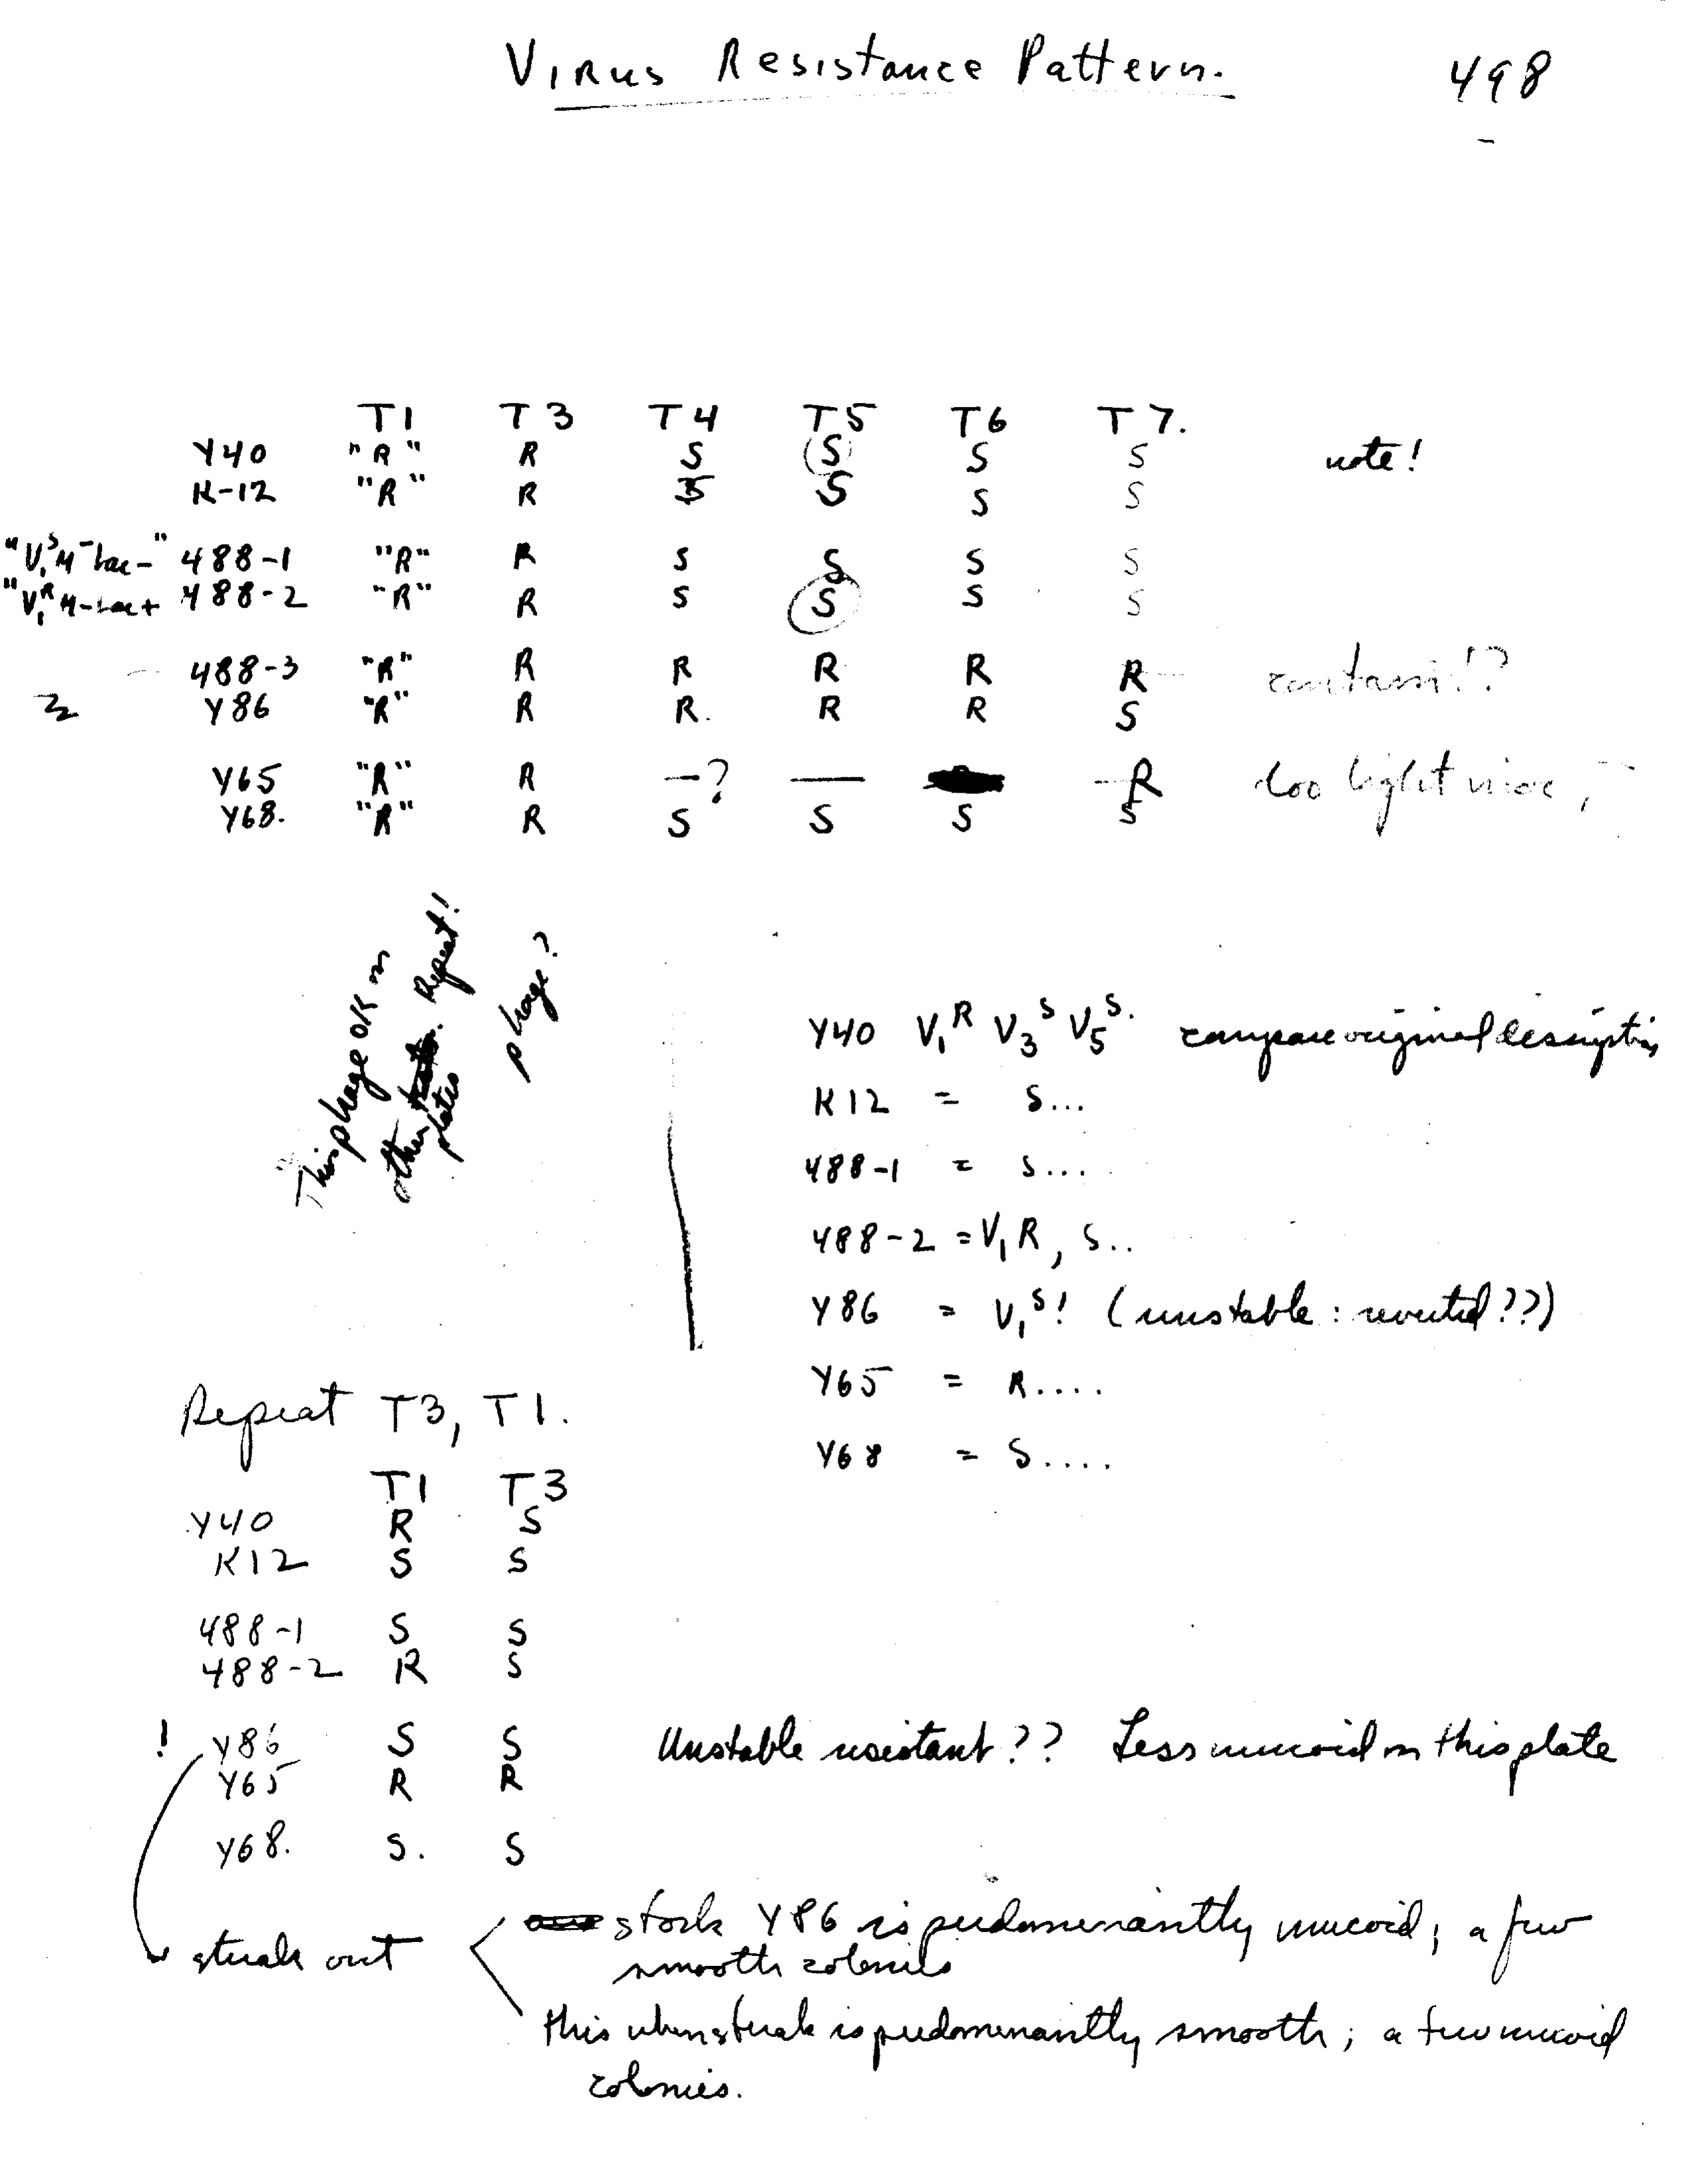 Virus Resistance Pattern. 498
T1 T3 T4 T5 T6 T7.
Y40 "R" R S S S S note!
K-12 "R" R S S S S
"V₁ˢM⁻Lac-" 488-1 "R" R S S S S
"V₁ᴿM-Lac+ 488-2 "R" R S S S S
488-3 "R" R R R R R contam!?
Y86 "R" R R. R R S
Y65 "R" R —? — R too light
Y68. "R" R S S S S
This phage OK on
other plates. Repeat!
phage?
Y40 V₁ᴿ V₃ˢ V₅ˢ. compare original description
K12 = S...
488-1 = S...
488-2 = V₁R, S..
Y86 = V₁ˢ! (unstable: reverted??)
Y65 = R....
Y68 = S....
Repeat T3, T1.
T1 T3
Y40 R S
K12 S S
488-1 S S
488-2 R S
! Y86 S S Unstable resistant?? Less mucoid on this plate
Y65 R R
Y68. S. S
streak out
stock Y86 is predominantly mucoid; a few
smooth colonies
this when streak is predominantly smooth; a few mucoid
colonies.